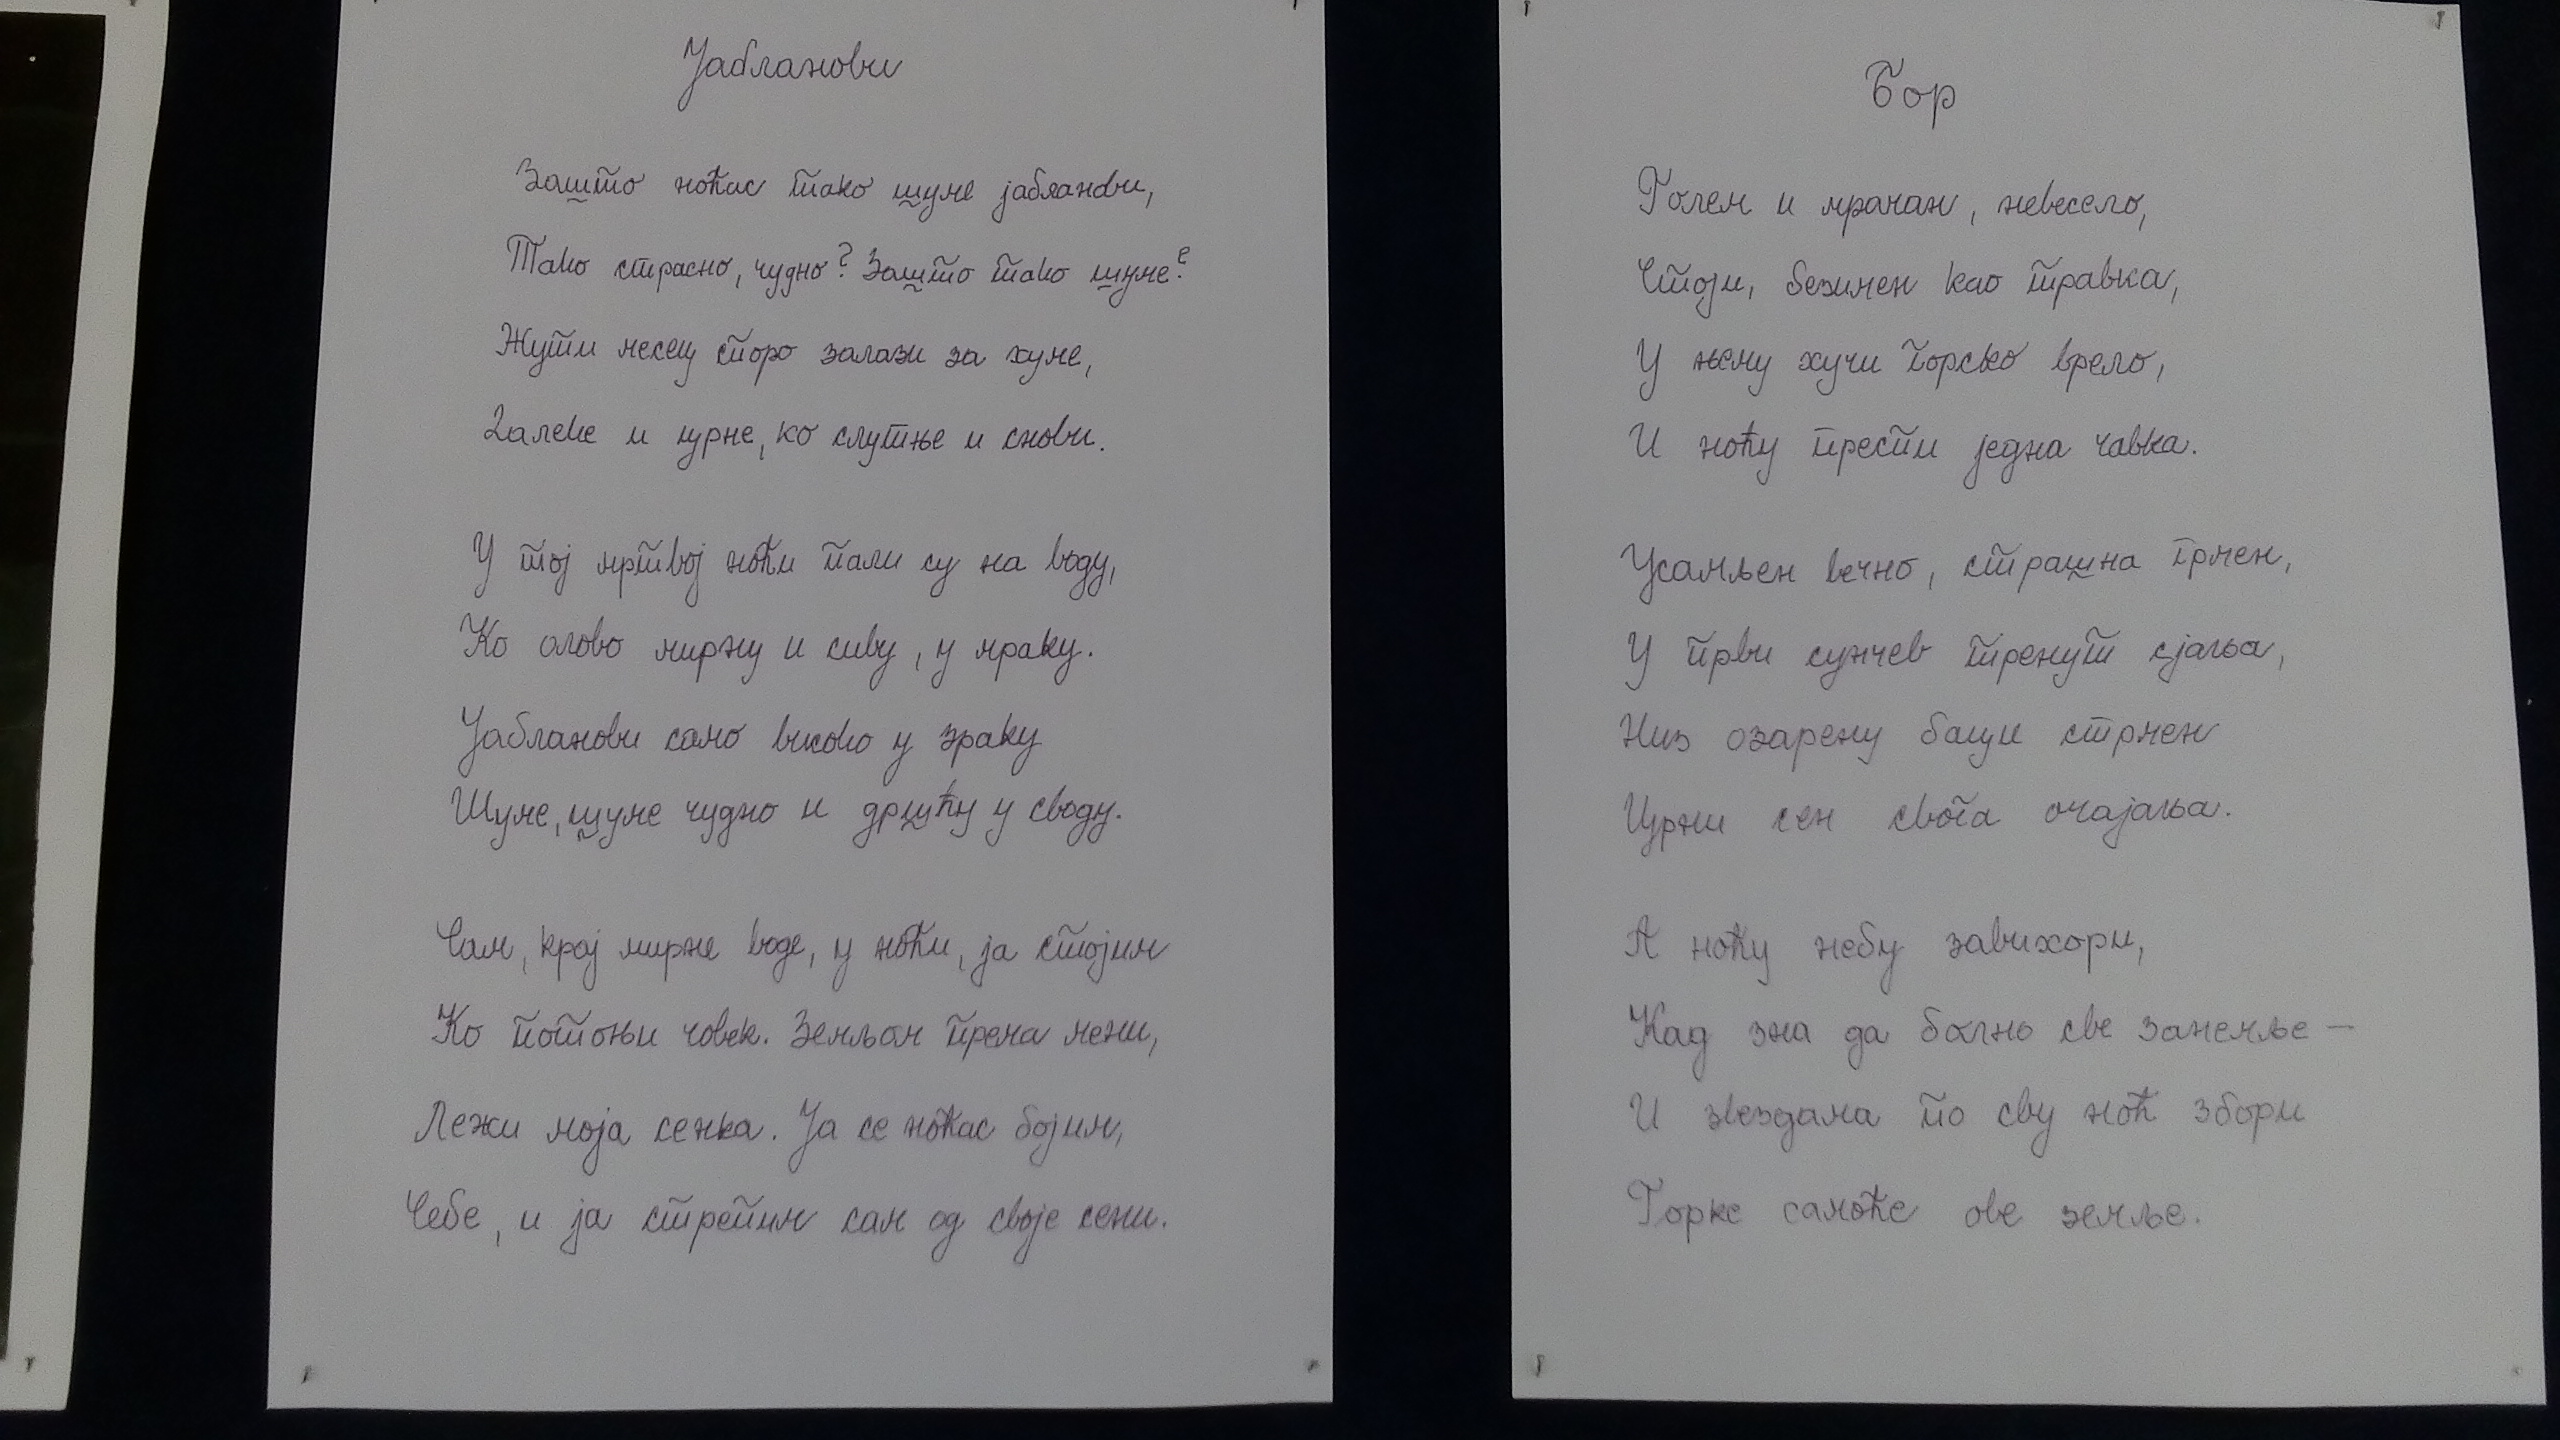 Јабланови
Зашто ноћас тако шуме јабланови,
Тако страсно, чудно? Зашто тако шуме?
Жути месец споро залази за хуме,
Далеке и црне, ко слутње и снови.
У тој мртвој ноћи пали су на воду,
Ко олово мирну и сиву, у мраку.
Јабланови само високо у зраку
Шуме, шуме чудно и дршћу у своду.
Сам, крај мирне воде, у ноћи, ја стојим
Ко потоњи човек. Земљом према мени,
Лежи моја сенка. Ја се ноћас бојим,
Себе, и ја стрепим сам од своје сени.
Бор
Голем и мрачан, невесело,
Стоји, безимен као травка,
У њему хучи горско врело,
И ноћу преспи једна чавка.
Усамљен вечно, страшна грмен,
У први сунчев тренут сјања,
Низ озарену баци стрмен
Црни сен свога очајања.
А ноћу небу завихори,
Кад зна да болно све занемље —
И звездама по сву ноћ збори
Горке самоће ове земље.